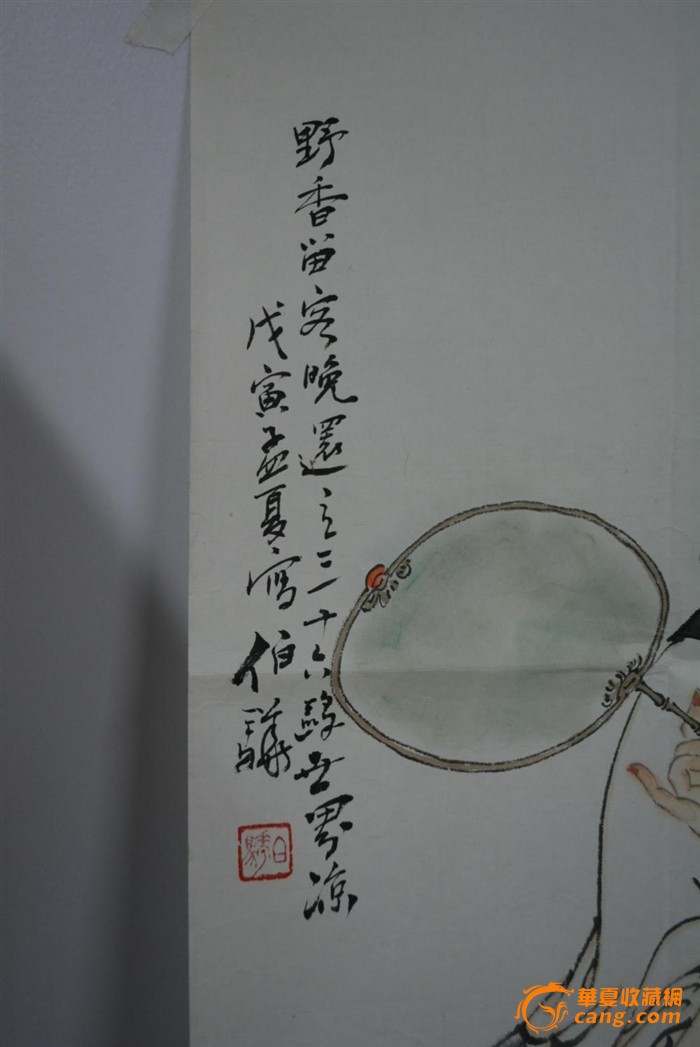 野香留客晚還立三十六鷗世界凉
戊寅孟夏寫伯驊
華夏收藏網
cang.com